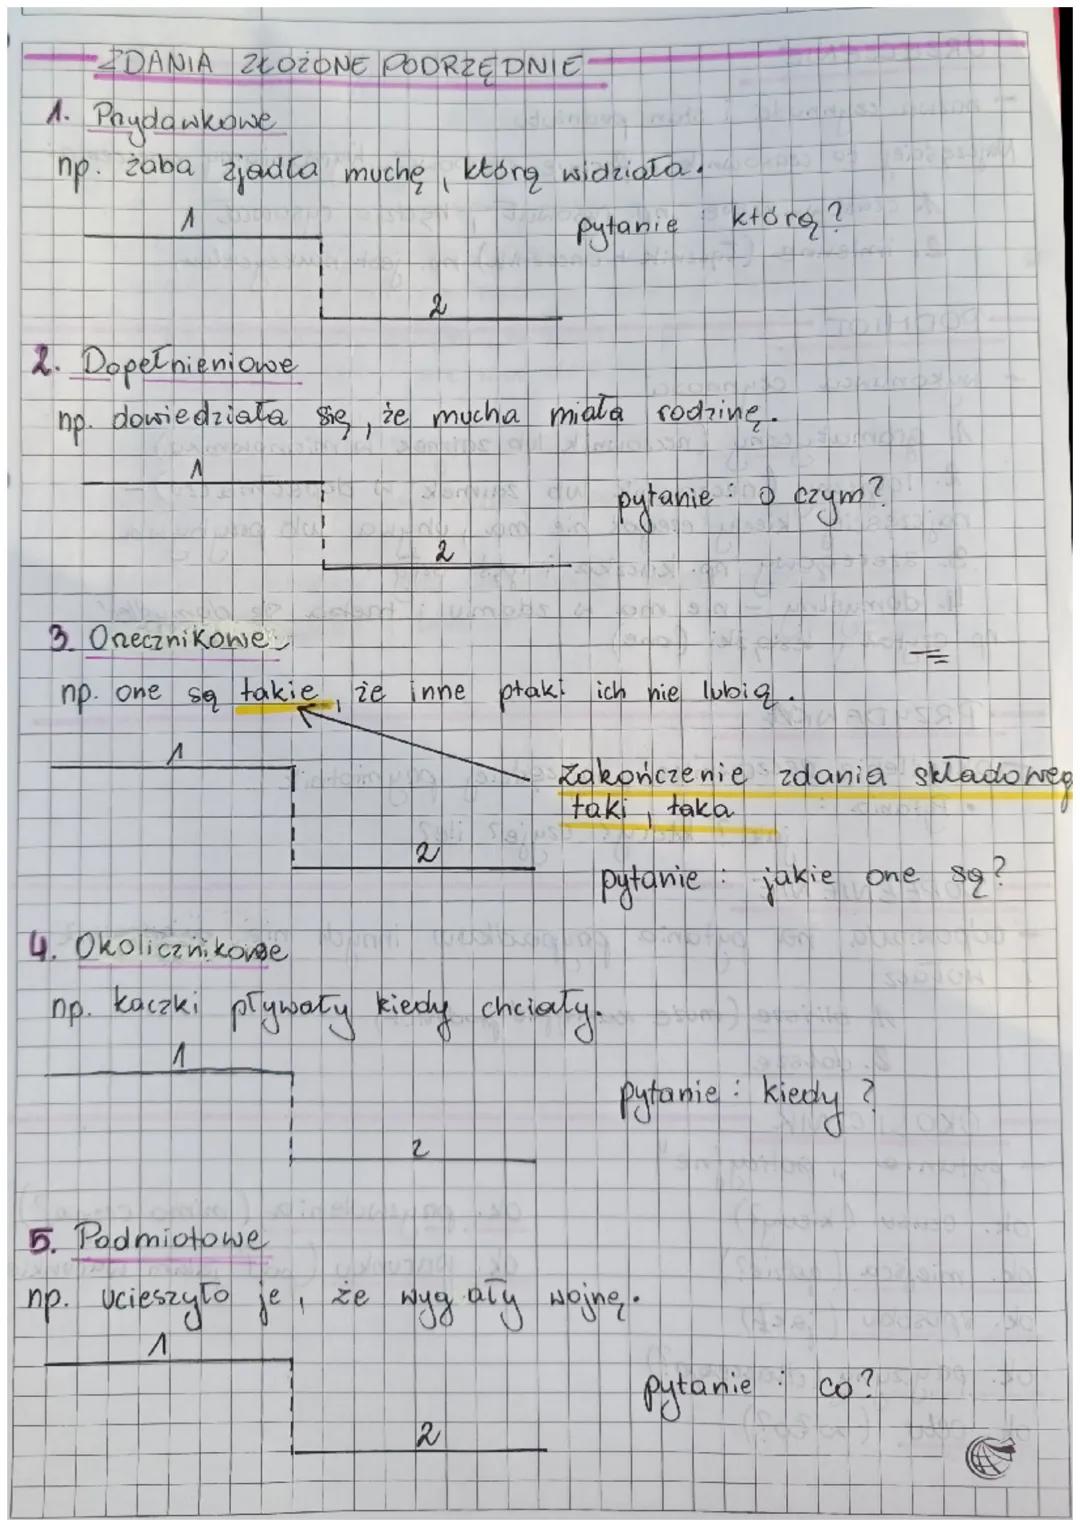 ZDANIA ZŁOŻONE PODRZĘDNIE
1. Przydawkowe
np. żaba zjadła muchę, którą widziała.
1
pytanie: którą?
2
2. Dopełnieniowe
np. dowiedziała się, że mucha miała rodzinę.
1
pytanie: o czym?
2
3. Orzecznikowe
np. one są takie, że inne ptaki ich nie lubią.
1
zakończenie zdania składoweg
taki, taka
2
pytanie: jakie one są?
4. Okolicznikowe
np. kaczki pływały kiedy chciały.
1
pytanie: kiedy?
2
5. Podmiotowe
np. ucieszyło je, że wygrały wojnę.
1
pytanie: co?
2